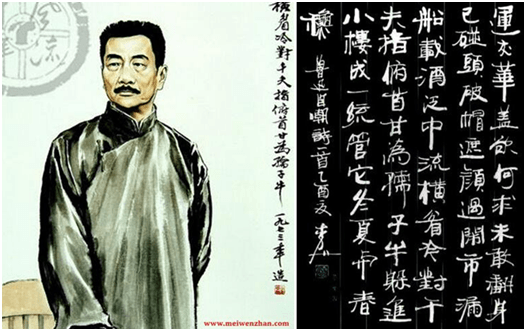 橫眉冷對千夫指俯首甘為孺子牛 一九七三年造
www.meiwenzhan.com
運交華蓋欲何求未敢翻身
已碰頭破帽遮顏過鬧市漏
船載酒泛中流橫眉冷對千
夫指俯首甘為孺子牛躲進
小樓成一統管它冬夏與春
秋 魯迅自嘲詩一首乙酉夏